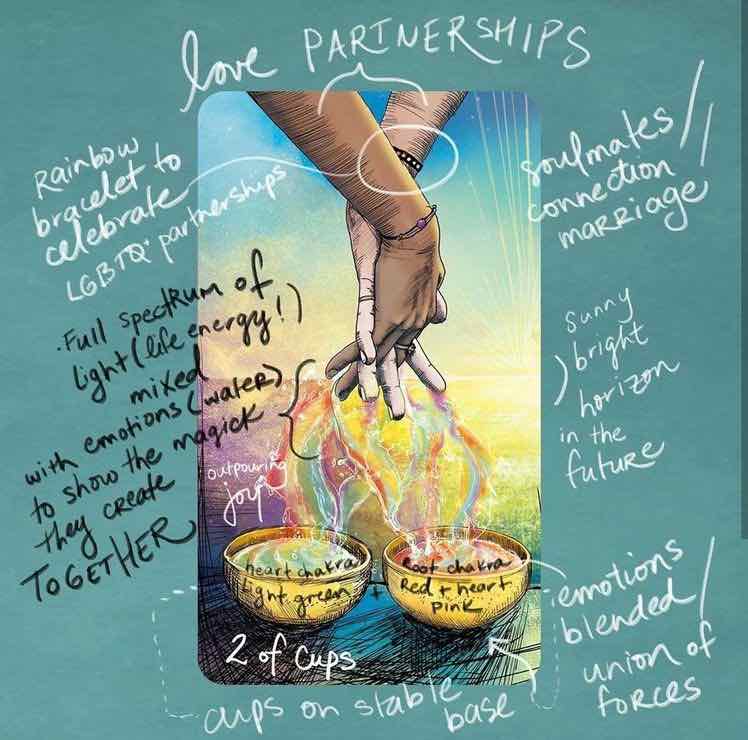 love PARTNERSHIPS
Rainbow
bracelet to
celebrate
LGBTQ+ partnerships
soulmates
connection
marriage
·Full spectrum of
light (life energy!)
mixed
with emotions (water)
to show the magick
they create
TOGETHER
outpouring
joy
sunny
bright
horizon
in the
future
heart chakra
light green
+
Root chakra
Red + heart
pink
2 of cups
emotions
blended
union of
forces
cups on stable
base